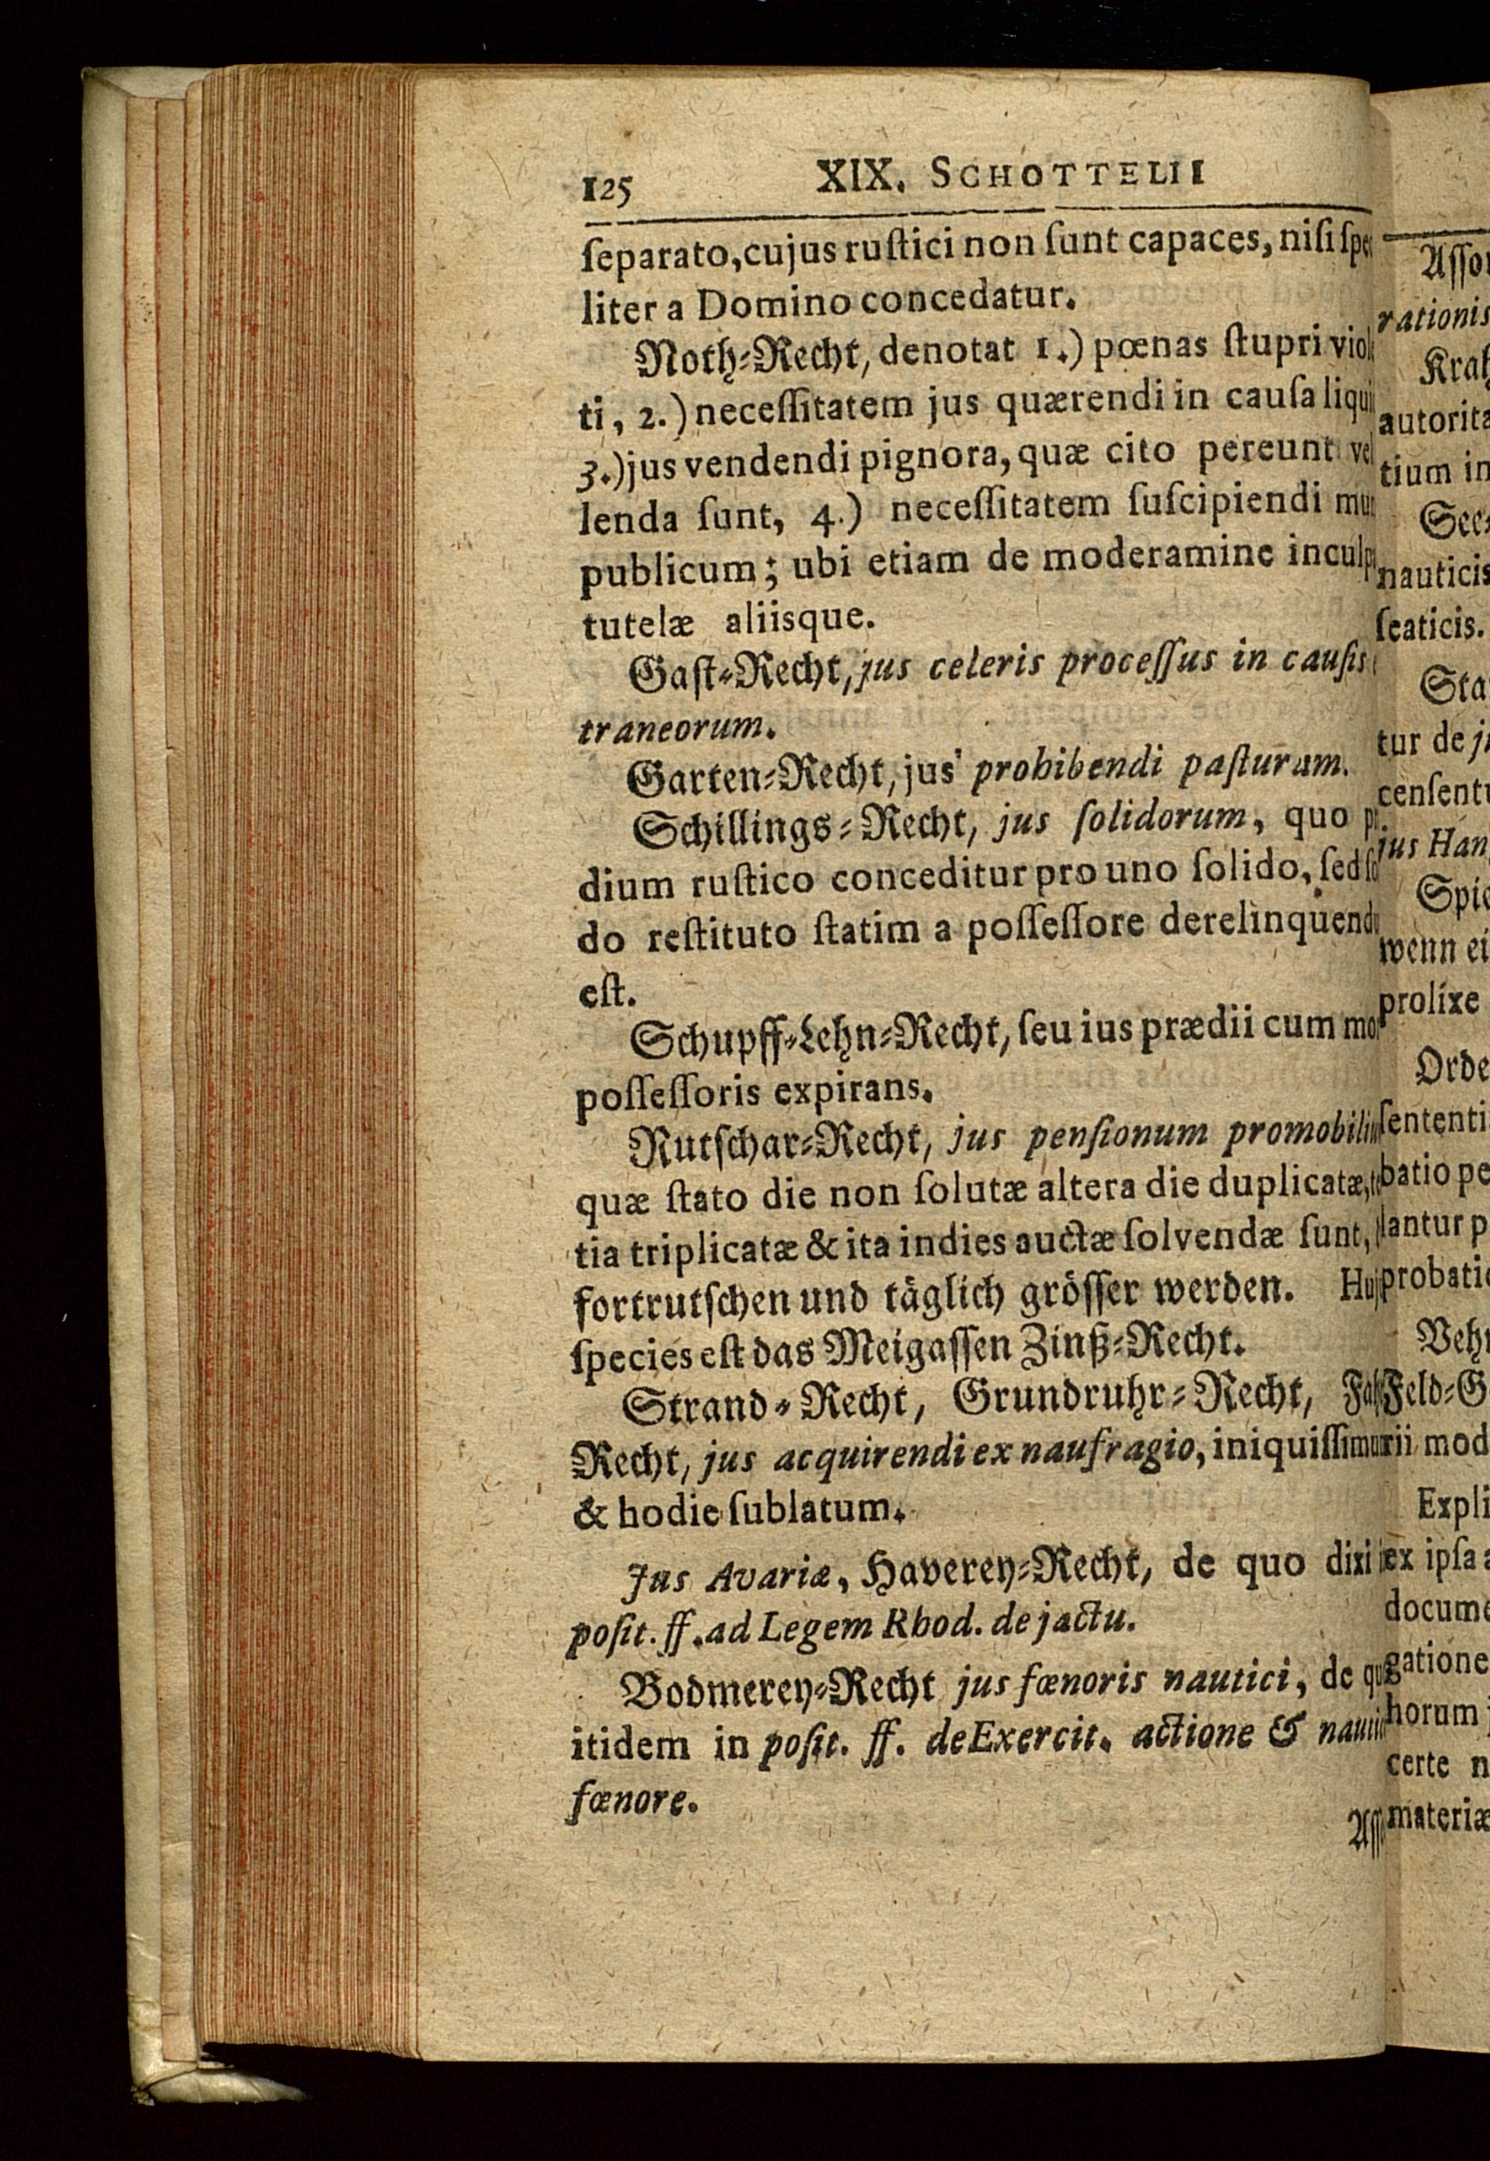 125 XIX. SCHOTTELII
ſeparato, cujus ruſtici non ſunt capaces, niſi
liter a Domino concedatur.
Noth-Recht, denotat 1.) pœnas ſtupri
ti, 2.) neceſſitatem jus quærendi in cauſa
3.) jus vendendi pignora, quæ cito pereunt
lenda ſunt, 4.) neceſſitatem ſuſcipiendi
publicum; ubi etiam de moderamine
tutelæ aliisque.
Gaſt-Recht, jus celeris proceſſus in cauſis
traneorum.
Garten-Recht, jus prohibendi paſturam.
Schillings-Recht, jus ſolidorum, quo
dium ruſtico conceditur pro uno ſolido, ſed
do reſtituto ſtatim a poſſeſſore
eſt.
Schupff-Lehn-Recht, ſeu ius prædii cum
poſſeſſoris expirans.
Rutſchar-Recht, jus penſionum
quæ ſtato die non ſolutæ altera die duplicatæ,
tia triplicatæ & ita indies auctæ ſolvendæ ſunt,
fortrutſchen und täglich gröſſer werden.
ſpecies eſt das Meigaſſen Zinß-Recht.
Strand-Recht, Grundruhr-Recht,
Recht, jus acquirendi ex naufragio,
& hodie ſublatum.
Jus Avariæ, Haverey-Recht, de quo dixi
poſit. ff. ad Legem Rhod. de jactu.
Bodmerey-Recht jus fœnoris nautici, de
itidem in poſit. ff. de Exercit. actione &
fœnore.
rationis
tium in
nauticis
ſeaticis.
tur de
wenn
prolixe
batio
lantur
rii
ex ipſa
horum
certe
materiæ